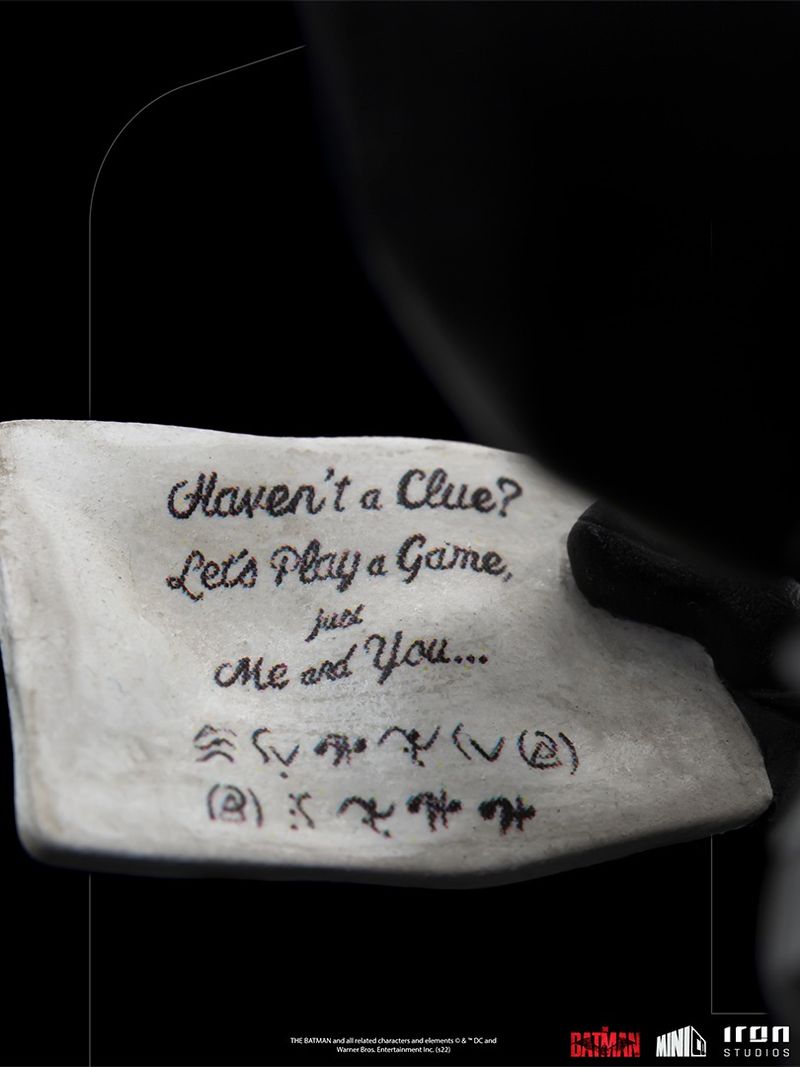 Haven't a Clue?
Let's Play a Game,
just
Me and You...
THE BATMAN and all related characters and elements © & ™ DC and
Warner Bros. Entertainment Inc. (s22)
THE
BATMAN
MINICO
IRON
STUDIOS